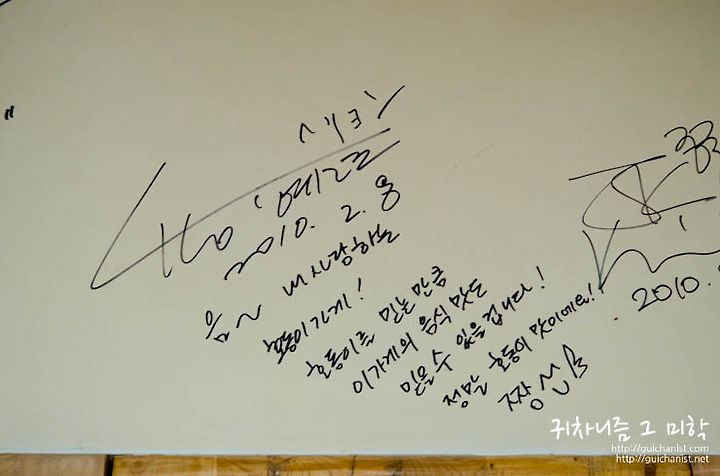 2010. 2. 8
음~ 내 사랑하는
호동이가게!
호동이를 믿는 만큼
이가게의 음식 맛도
믿을 수 있을 겁니다!
정말 호동이 맛이에요!
짱
2010.
귀차니즘 그 미학
http://guichanist.com
http://guichanist.net